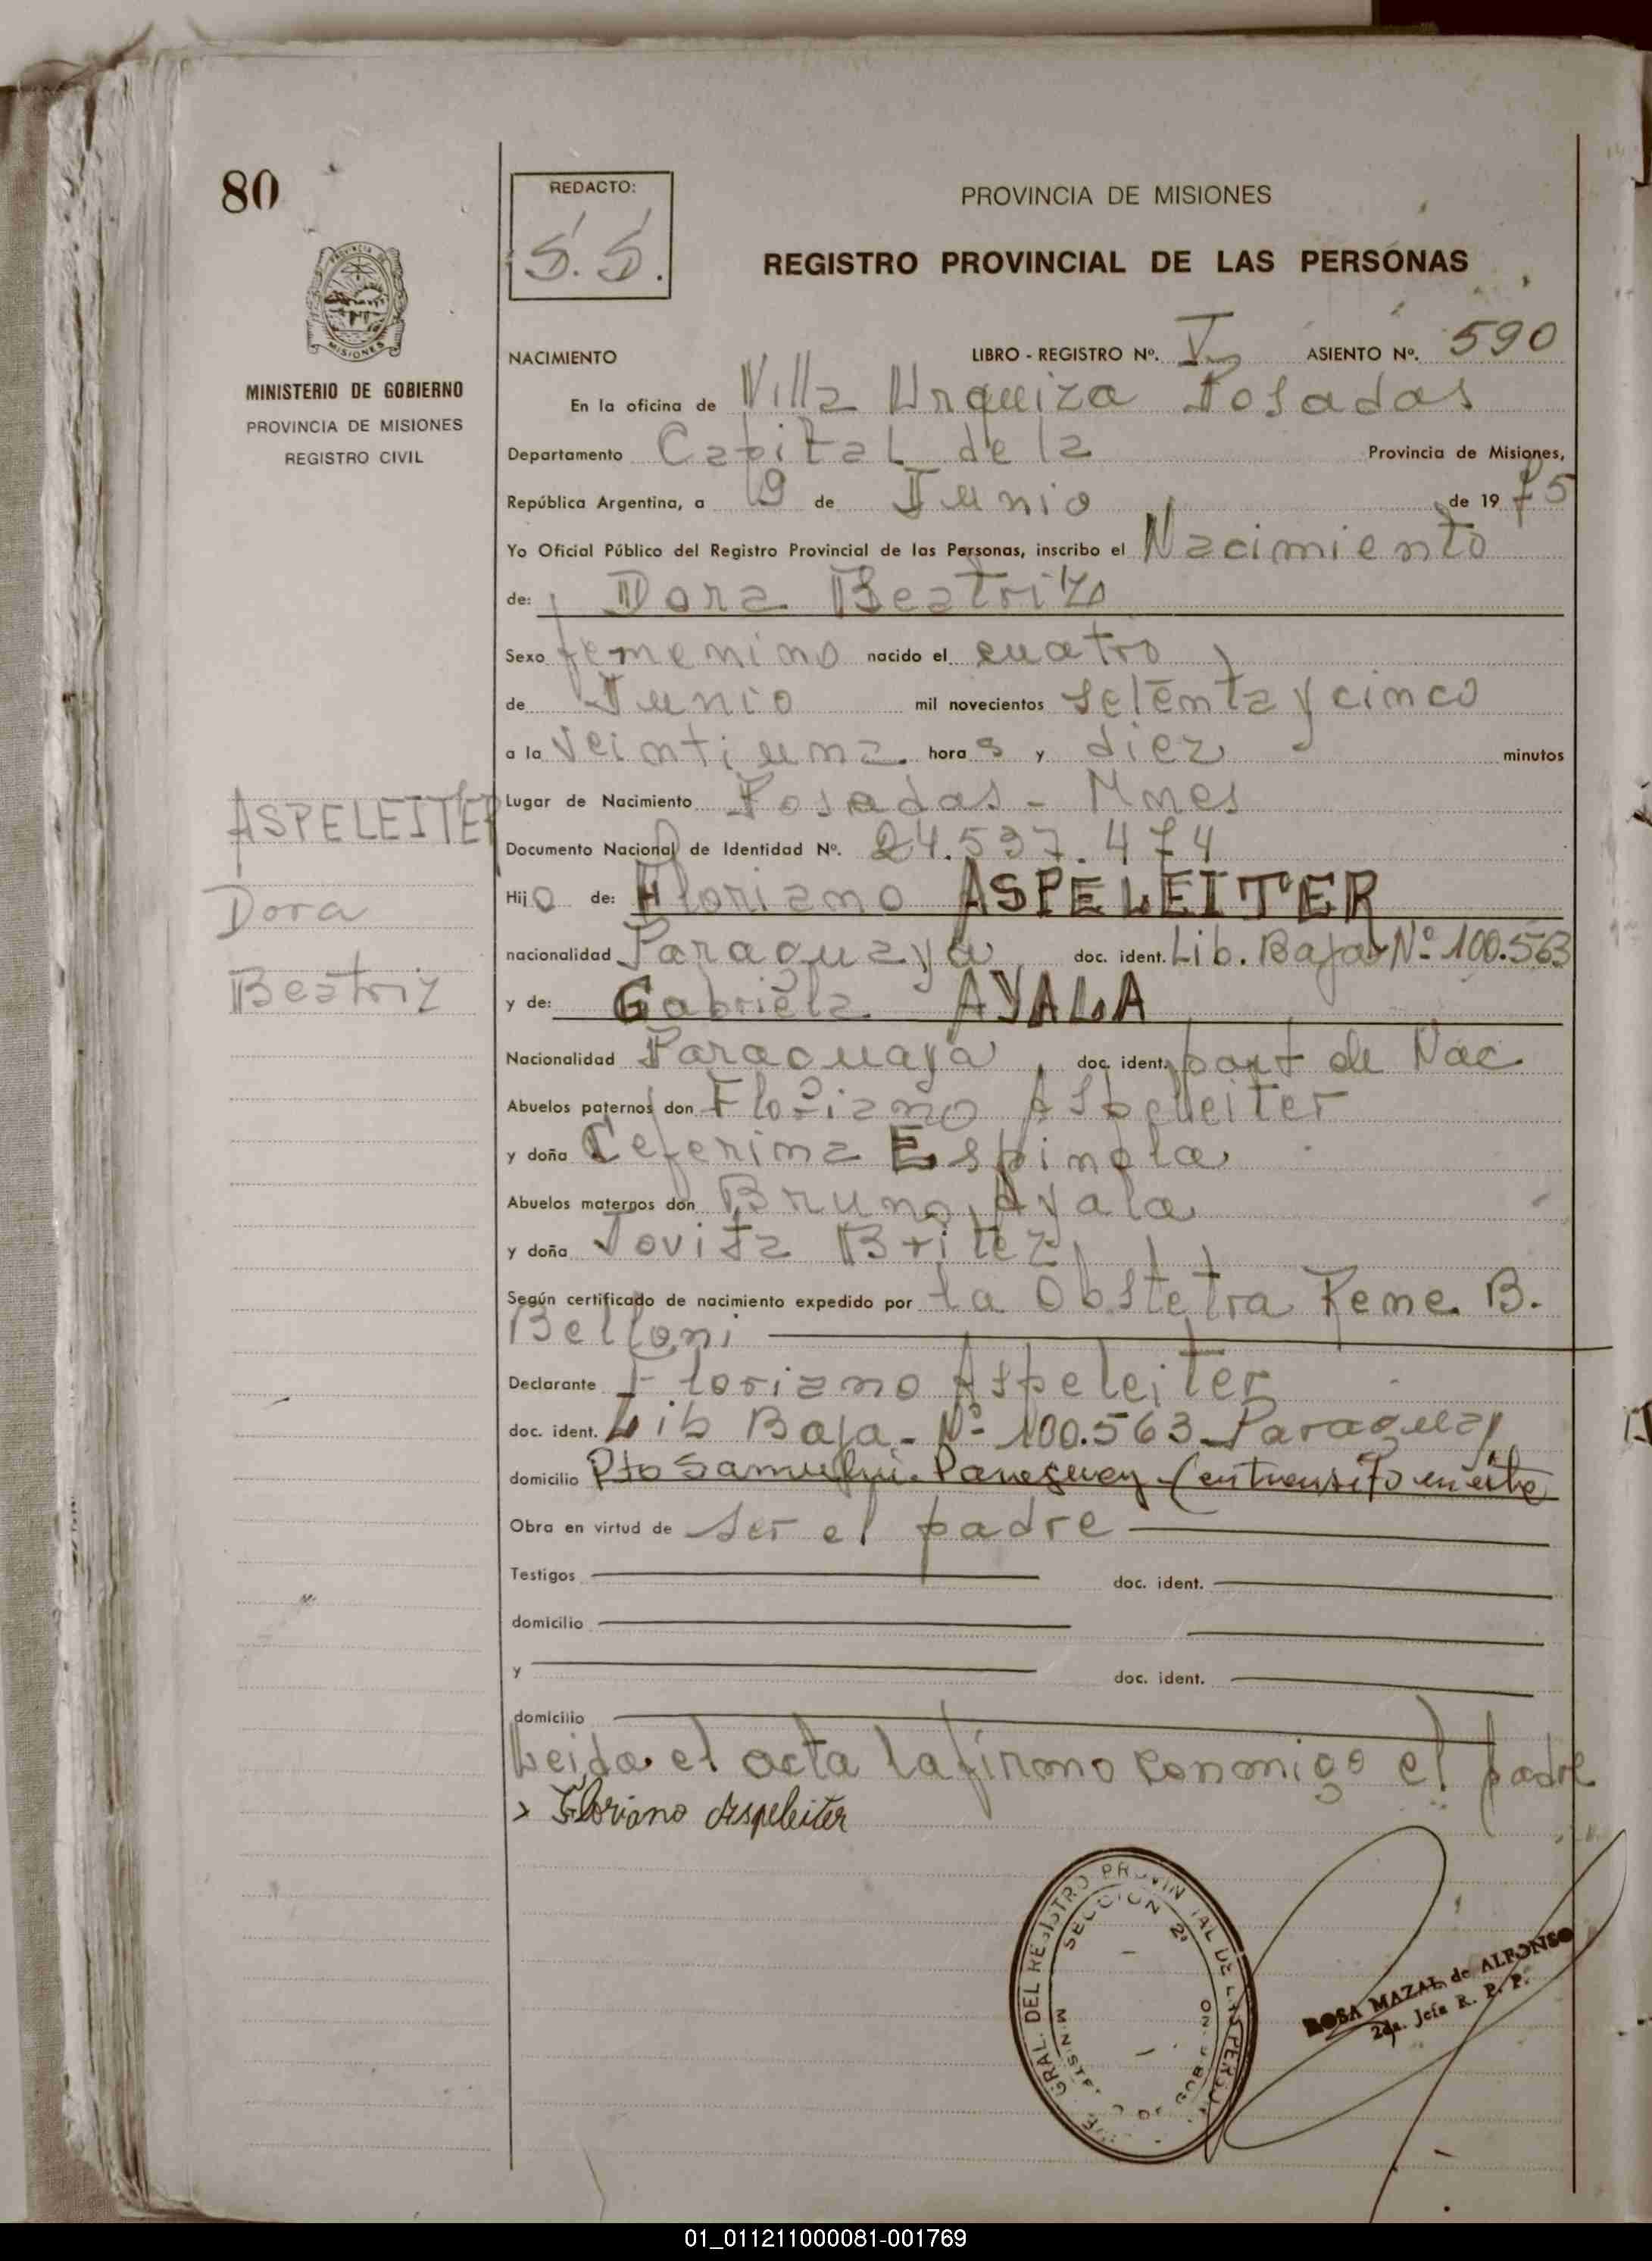 80
REDACTO:
S. S.
PROVINCIA DE MISIONES
REGISTRO PROVINCIAL DE LAS PERSONAS
MISIONES
MINISTERIO DE GOBIERNO
PROVINCIA DE MISIONES
REGISTRO CIVIL
NACIMIENTO LIBRO - REGISTRO Nº. V ASIENTO Nº. 590
En la oficina de Villa Urquiza Posadas
Departamento Capital de la Provincia de Misiones,
República Argentina, a 19 de Junio de 19 75
Yo Oficial Público del Registro Provincial de las Personas, inscribo el Nacimiento
de: Dora Beatriz
Sexo femenino nacido el cuatro
de Junio mil novecientos setenta y cinco
a la veintiuna hora s y diez minutos
Lugar de Nacimiento Posadas - Mnes
Documento Nacional de Identidad Nº. 24.537.474
Hij o de: Floriano ASPELEITER
nacionalidad Paraguaya doc. ident. Lib. Baja Nº 100.563
y de: Gabriela AYALA
Nacionalidad Paraguaya doc. ident. part de Nac
Abuelos paternos don Floriano Aspeleiter
y doña Ceferina Espinola
Abuelos maternos don Bruno Ayala
y doña Jovita Britez
Según certificado de nacimiento expedido por la Obstetra Rene. B.
Belloni
Declarante Floriano Aspeleiter
doc. ident. Lib Baja - Nº 100.563 Paraguay
domicilio Pto Paraguay - (en transito en esta
Obra en virtud de ser el padre
Testigos doc. ident.
domicilio
y doc. ident.
domicilio
Leida el acta la firmo conmigo el padre
> Floriano Aspeleiter
ASPELEITER
Dora
Beatriz
GRAL. DEL REGISTRO PROVINCIAL DE LAS PERSONAS
SECCION 2ª
ROSA MAZAL de ALFONSO
2da. Jefa R. P. P.
01_011211000081-001769